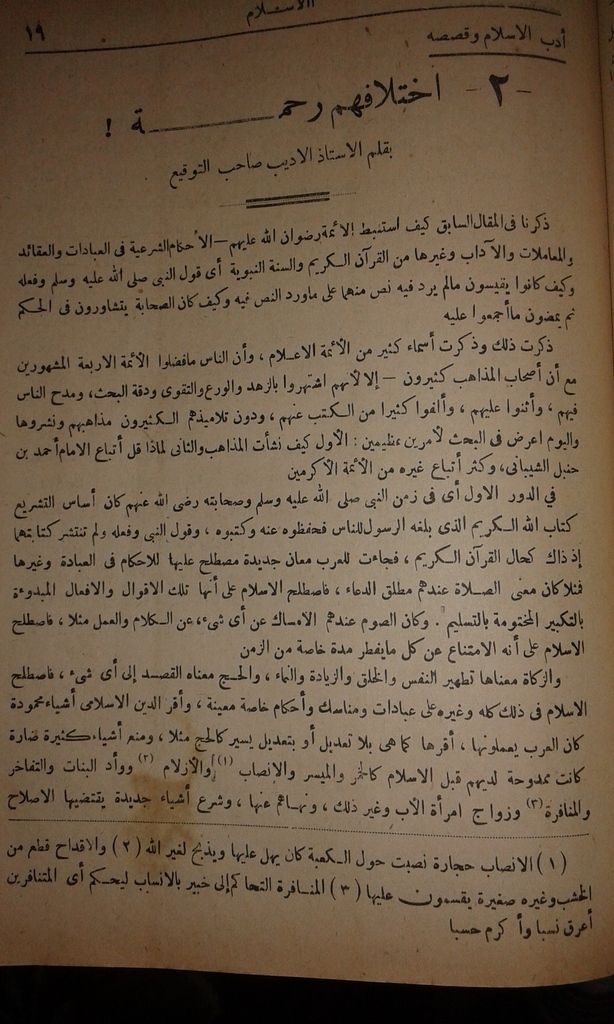 الاسلام
١٩
أدب الاسلام وقصصه
- ٢ - اختلافهم رحمة !
بقلم الاستاذ الاديب صاحب التوقيع
ذكرنا فى المقال السابق كيف استنبط الائمة رضوان الله عليهم — الاحكام الشرعية فى العبادات والعقائد
والمعاملات والآداب وغيرها من القرآن الكريم والسنة النبوية أى قول النبى صلى الله عليه وسلم وفعله
وكيف كانوا يقيسون مالم يرد فيه نص منهما على ماورد النص فيه وكيف كان الصحابة يتشاورون فى الحكم
ثم يمضون ماأجمعوا عليه
ذكرت ذلك وذكرت أسماء كثير من الأئمة الاعلام ، وأن الناس مافضلوا الأئمة الاربعة المشهورين
مع أن أصحاب المذاهب كثيرون — إلا لأنهم اشتهروا بالزهد والورع والتقوى ودقة البحث، ومدح الناس
فيهم ، وأثنوا عليهم ، وألفوا كثيرا من الكتب عنهم ، ودون تلاميذهم الكثيرون مذاهبهم ونشروها
واليوم اعرض فى البحث لأمرين عظيمين : الأول كيف نشأت المذاهب والثانى لماذا قل أتباع الامام أحمد بن
حنبل الشيبانى، وكثر أتباع غيره من الأئمة الأكرمين
في الدور الاول أى فى زمن النبى صلى الله عليه وسلم وصحابته رضى الله عنهم كان أساس التشريع
كتاب الله الكريم الذى بلغه الرسول للناس فحفظوه عنه وكتبوه ، وقول النبى وفعله ولم تنتشر كتابتهما
إذ ذاك كحال القرآن الكريم ، فجاءت للعرب معان جديدة مصطلح عليها للاحكام فى العبادة وغيرها
فمثلا كان معنى الصلاة عندهم مطلق الدعاء ، فاصطلح الاسلام على أنها تلك الاقوال والافعال المبدوءة
بالتكبير المختومة بالتسليم . وكان الصوم عندهم الامساك عن أى شىء، عن الكلام والعمل مثلا ، فاصطلح
الاسلام على أنه الامتناع عن كل مايفطر مدة خاصة من الزمن
والزكاة معناها تطهير النفس والخلق والزيادة والنماء ، والحج معناه القصد إلى أى شىء ، فاصطلح
الاسلام فى ذلك كله وغيره على عبادات ومناسك وأحكام خاصة معينة ، وأقر الدين الاسلامى أشياء محمودة
كان العرب يعملونها ، أقرها كما هى بلا تعديل أو بتعديل يسير كالحج مثلا ، ومنع أشياء كثيرة ضارة
كانت ممدوحة لديهم قبل الاسلام كالخمر والميسر والانصاب (١) والأزلام (٢) ووأد البنات والتفاخر
والمنافرة (٣) وزواج امرأة الأب وغير ذلك ، ونهاهم عنها ، وشرع أشياء جديدة يقتضيها الاصلاح
(١) الانصاب حجارة نصبت حول الكعبة كان يهل عليها ويذبح لغير الله (٢) والاقداح قطع من
الخشب وغيره صغيرة يقسمون عليها (٣) المنافرة التحاكم إلى خبير بالانساب ليحكم أى المتنافرين
أعرق نسبا وأكرم حسبا